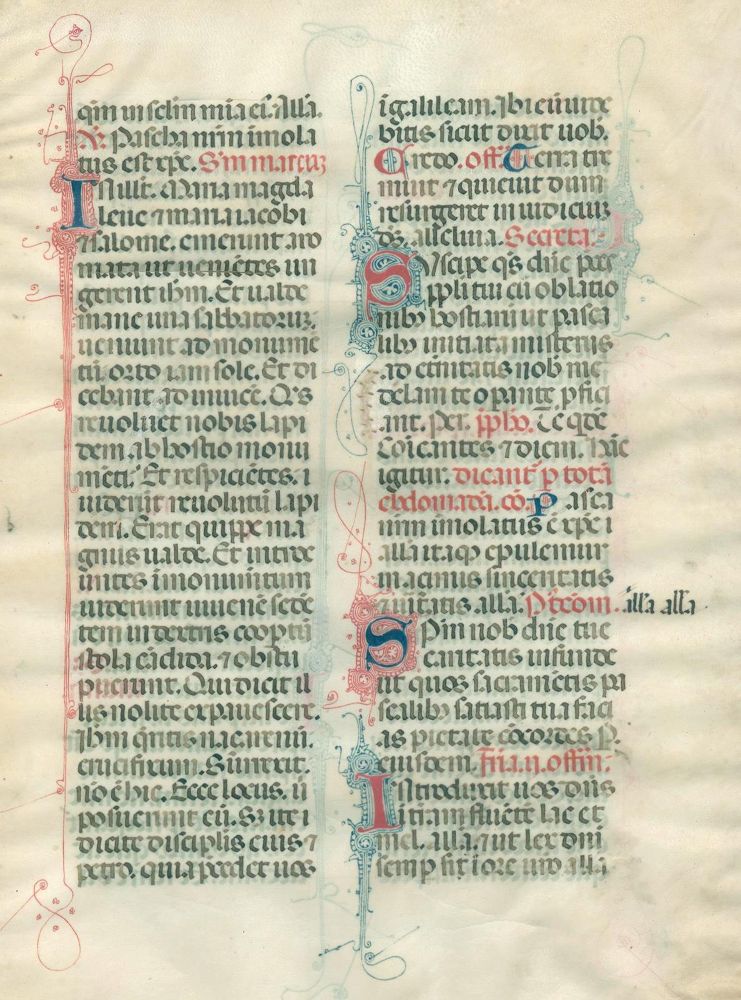 qm in sclm mia ei. Alla.
V. Pascha nrm imola
tus est xpc. S'm marcuz
In illt. Maria magda
lene ⁊ maria iacobi
⁊ salome. emerunt aro
mata ut uenietes un
gerent ihm. Et ualde
mane una sabbatoruz.
ueniunt ad monume
tu orto iam sole. Et di
cebant ad inuice. Qs
reuoluet nobis lapi
dem. ab hostio monu
meti. Et respicietes.
uiderut reuolutu lapi
dem. Erat quippe ma
gnus ualde. Et introe
untes i monumtum
uiderunt iuuene sede
tem in dextris cooptu
stola cadida. ⁊ obstu
puerunt. Qui dicit il
lis nolite expauescere.
Ihm qritis nacarenu.
crucifixum. Surrexit.
no e hic. Ecce locus. u
posuerunt eu. Sz ite i
dicite disciplis eius ⁊
petro. quia pcedet uos
i galileam. Ibi eu uide
bitis sicut dixit uob.
Credo. off. Terra tre
muit ⁊ quieuit dum
resurgeret in iudiciuz
ds. alleluia. Secreta.
Suscipe qs dne pces
ppli tui cu oblatio
nib hostiaru ut pasca
lib initiata misteriis
ad etnitatis nob me
delam te opante pfici
ant. Per. ipho. Te qde
Coicantes ⁊ diem. Hac
igitur. dicant p tota
ebdomada. co. Pasca
nrm imolatus e xpc i
alla itaq epulemur
in acimis sinceritatis
⁊ uitatis alla. P'tcom. alla alla
Spm nob dne tue
caritatis infunde
ut quos sacrametis pa
scalib satiasti tua faci
as pietate cocordes. P.
eiusdem. Fria. ii. offm:
Introduxit uos dns
i tram fluete lac et
mel. alla. ⁊ ut lex dni
semp sit i ore uro alla